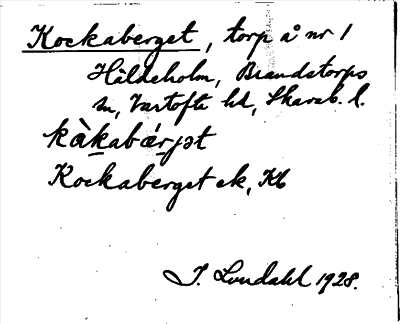 Kockaberget, torp å nr 1
Häldeholm, Brandstorps
sn, Vartofta hd, Skarab. l.
kàkabǽrjət
Kockaberget ek, Kb
I. Lundahl 1928.